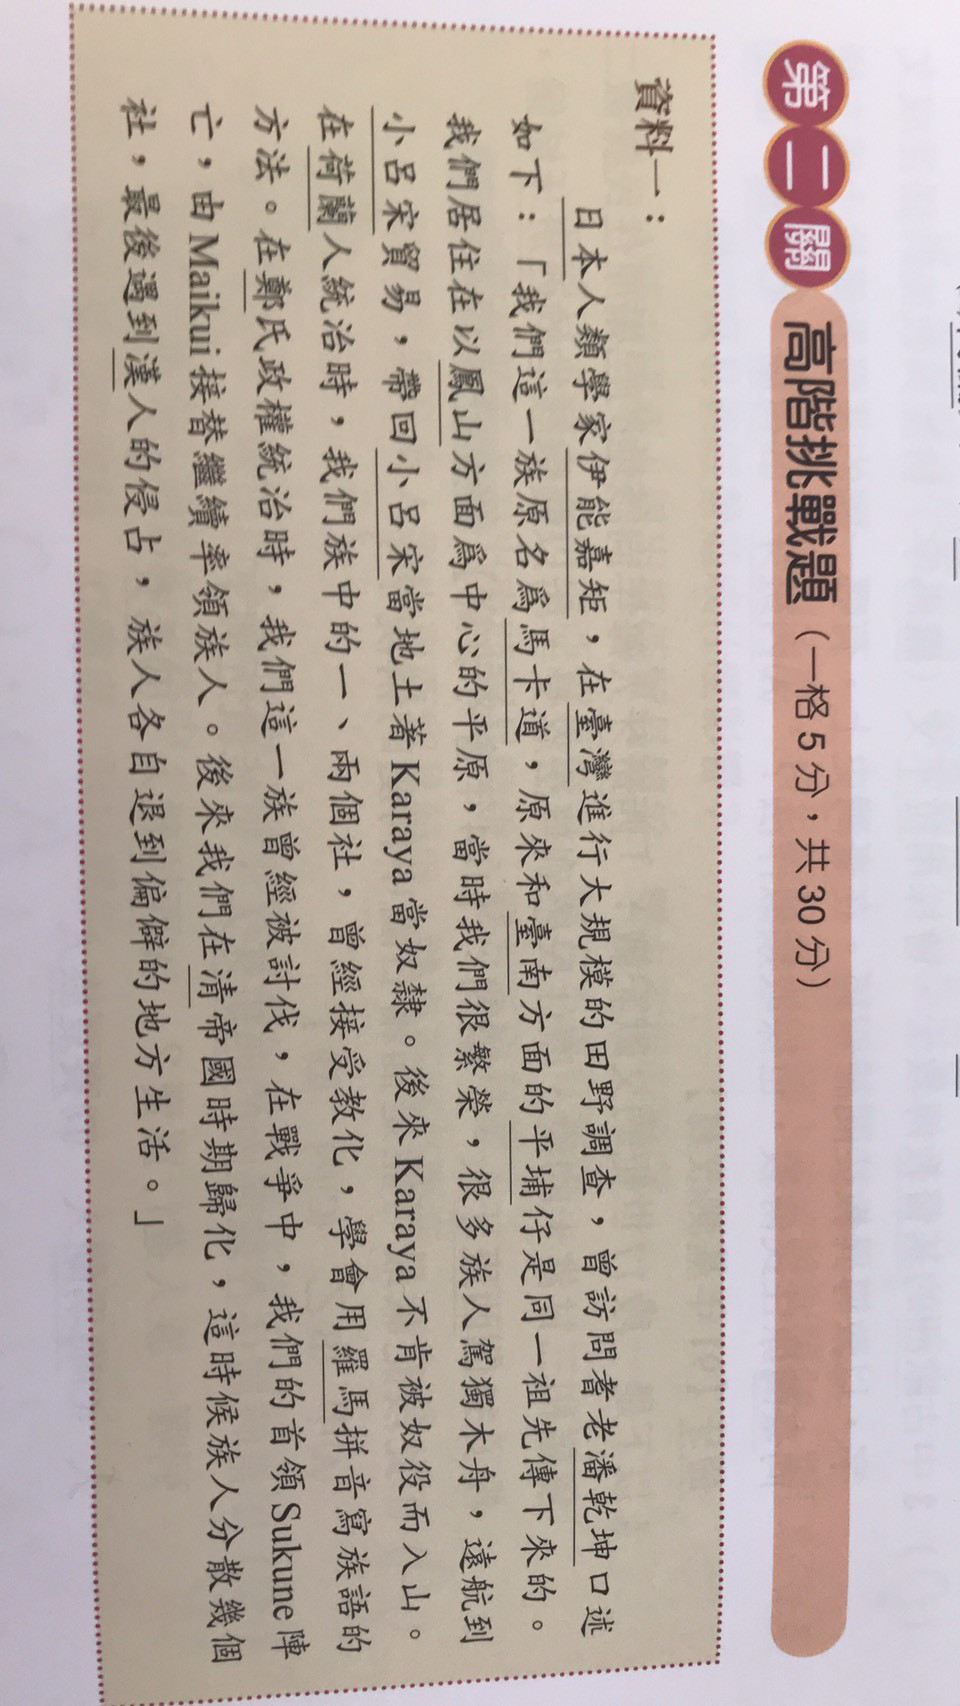 第二關 高階挑戰題（一格5分，共30分）
資料一：
日本人類學家伊能嘉矩，在臺灣進行大規模的田野調查，曾訪問耆老潘乾坤口述
如下：「我們這一族原名為馬卡道，原來和臺南方面的平埔仔是同一祖先傳下來的。
我們居住在以鳳山方面為中心的平原，當時我們很繁榮，很多族人駕獨木舟，遠航到
小呂宋貿易，帶回小呂宋當地土著Karaya當奴隸。後來Karaya不肯被奴役而入山。
在荷蘭人統治時，我們族中的一、兩個社，曾經接受教化，學會用羅馬拼音寫族語的
方法。在鄭氏政權統治時，我們這一族曾經被討伐，在戰爭中，我們的首領Sukune陣
亡，由Maikui接替繼續率領族人。後來我們在清帝國時期歸化，這時候族人分散幾個
社，最後遇到漢人的侵占，族人各自退到偏僻的地方生活。」